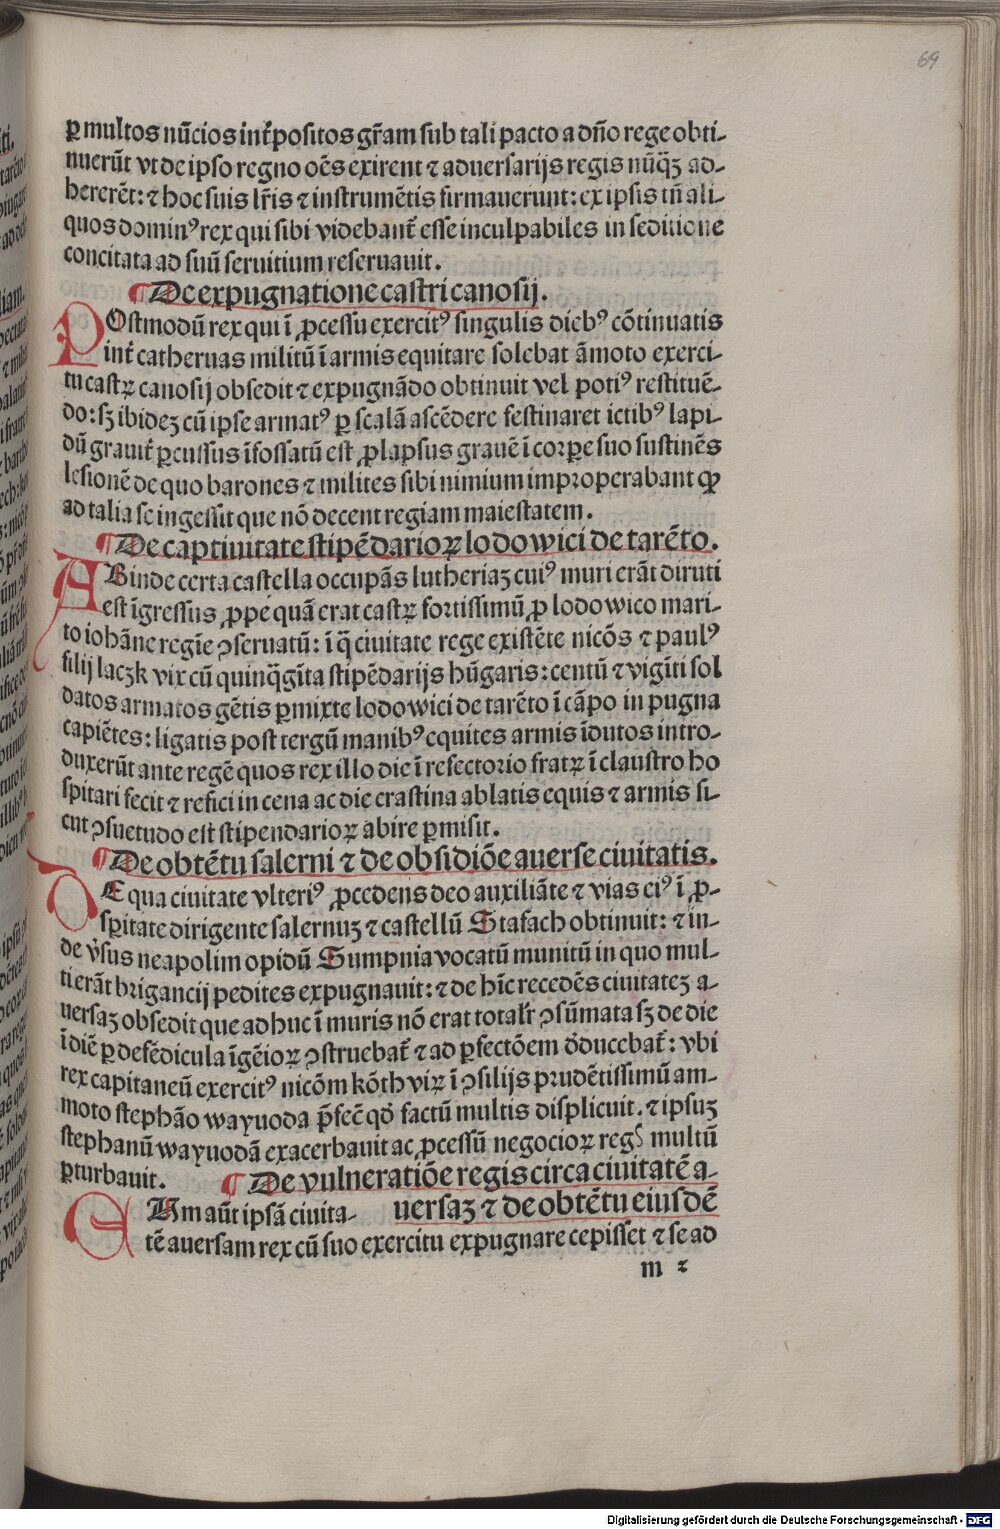 69
ꝑ multos nūcios int̄positos gr̄am sub tali pacto a dn̄o rege obti-
nuerūt vt de ipso regno oēs exirent ⁊ aduersarijs regis nūq̄ꝫ ad-
hererēt: ⁊ hoc suis lr̄is ⁊ instrumētis firmauerunt: ex ipsis tn̄ ali-
quos dominꝰ rex qui sibi videbant̄ esse inculpabiles in seditione
concitata ad suū seruitium reseruauit.
¶ De expugnatione castri canosij.
POstmodū rex qui ī ꝓcessu exercitꝰ singulis diebꝰ cōtinuatis
int̄ cateruas militū ī armis equitare solebat āmoto exerci-
tu castꝝ canosij obsedit ⁊ expugnādo obtinuit vel potiꝰ restituē-
do: sꝫ ibideꝫ cū ipse armatꝰ ꝑ scalā ascēdere festinaret ictibꝰ lapi-
dū grauit̄ ꝑcussus ī fossatū est ꝓlapsus grauē ī corꝑe suo sustinēs
lesionē de quo barones ⁊ milites sibi nimium improperabant ꝙ
ad talia se ingessit que nō decent regiam maiestatem.
¶ De captiuitate stipēdarioꝝ lodowici de tarēto.
ABinde certa castella occupās lutheriaꝫ cuiꝰ muri erāt diruti
est īgressus ꝓpe quā erat castꝝ fortissimū ꝓ lodowico mari-
to iohāne regīe ꝯseruatū: ī q̄ ciuitate rege existēte nicōs ⁊ paulꝰ
filij laczk vix cū quinq̄gīta stipēdarijs hūgaris: centū ⁊ vigīti sol
datos armatos gētis ꝑmixte lodowici de tarēto ī cāpo in pugna
capiētes: ligatis post tergū manibꝰ equites armis īdutos intro-
duxerūt ante regē quos rex illo die ī refectorio fratꝝ ī claustro ho
spitari fecit ⁊ refici in cena ac die crastina ablatis equis ⁊ armis si-
cut ꝯsuetudo est stipendarioꝝ abire ꝑmisit.
¶ De obtētu salerni ⁊ de obsidiōe auerse ciuitatis.
DE qua ciuitate vlteriꝰ ꝓcedens deo auxiliāte ⁊ vias eiꝰ ī ꝓ-
sꝑitate dirigente salernuꝫ ⁊ castellū Stafach obtinuit: ⁊ in-
de v̄sus neapolim opidū Sumpnia vocatū munitū in quo mul-
ti erāt brigancij pedites expugnauit: ⁊ de hīc recedēs ciuitateꝫ a-
uersaꝫ obsedit que ad huc ī muris nō erat total̄r ꝯsūmata sꝫ de die
ī diē ꝑ defēdicula īgēioꝝ ꝯstruebat̄ ⁊ ad ꝑfectōem d̄ducebat̄: vbi
rex capitaneū exercitꝰ nicōm kōth viꝝ ī ꝯsilijs prudētissimū am-
moto stephāo wayuoda p̄fec̄ qd̄ factū multis displicuit. ⁊ ipsuꝫ
stephanū wayuodā exacerbauit ac ꝓcessū negocioꝝ reḡ multū
ꝑturbauit. ¶ De vulneratiōe regis circa ciuitatē a-
CUm aūt ipsā ciuita- uersaꝫ ⁊ de obtētu eiusdē
tē auersam rex cū suo exercitu expugnare cepisset ⁊ se ad
m 2
Digitalisierung gefördert durch die Deutsche Forschungsgemeinschaft - DFG